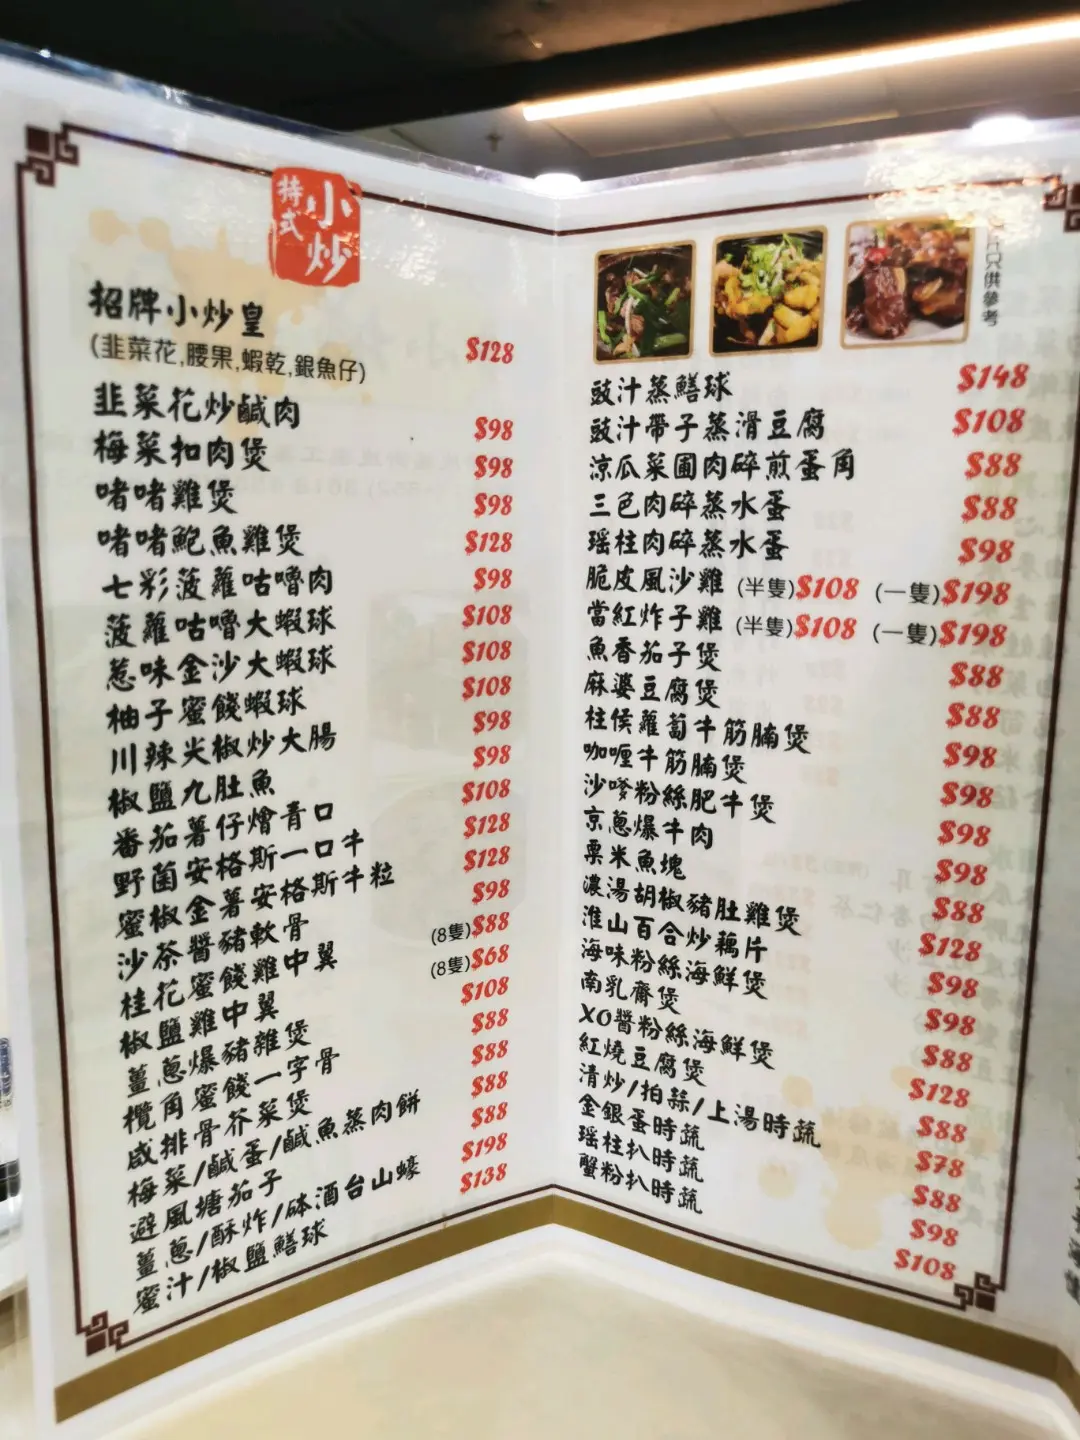 特式
小炒
招牌小炒皇
(韭菜花,腰果,蝦乾,銀魚仔) $128
韭菜花炒鹹肉 $98
梅菜扣肉煲 $98
啫啫雞煲 $98
啫啫鮑魚雞煲 $128
七彩菠蘿咕嚕肉 $98
菠蘿咕嚕大蝦球 $108
惹味金沙大蝦球 $108
柚子蜜餞蝦球 $108
川辣尖椒炒大腸 $98
椒鹽九肚魚 $98
番茄薯仔燴青口 $108
野菌安格斯一口牛 $128
蜜椒金薯安格斯牛粒 $128
沙茶醬豬軟骨 $98
桂花蜜餞雞中翼 (8隻)$88
椒鹽雞中翼 (8隻)$68
薑蔥爆豬雜煲 $108
欖角蜜餞一字骨 $88
咸排骨芥菜煲 $88
梅菜/鹹蛋/鹹魚蒸肉餅 $88
避風塘茄子 $88
薑蔥/酥炸/砵酒台山蠔 $198
蜜汁/椒鹽鱔球 $138
片只供參考
豉汁蒸鱔球 $148
豉汁帶子蒸滑豆腐 $108
涼瓜菜圃肉碎煎蛋角 $88
三色肉碎蒸水蛋 $88
瑤柱肉碎蒸水蛋 $98
脆皮風沙雞 (半隻)$108 (一隻)$198
當紅炸子雞 (半隻)$108 (一隻)$198
魚香茄子煲 $88
麻婆豆腐煲 $88
柱侯蘿蔔牛筋腩煲 $98
咖喱牛筋腩煲 $98
沙嗲粉絲肥牛煲 $98
京蔥爆牛肉 $98
粟米魚塊 $88
濃湯胡椒豬肚雞煲 $128
淮山百合炒藕片 $98
海味粉絲海鮮煲 $98
南乳齋煲 $88
XO醬粉絲海鮮煲 $128
紅燒豆腐煲 $88
清炒/拍蒜/上湯時蔬 $78
金銀蛋時蔬 $88
瑤柱扒時蔬 $98
蟹粉扒時蔬 $108